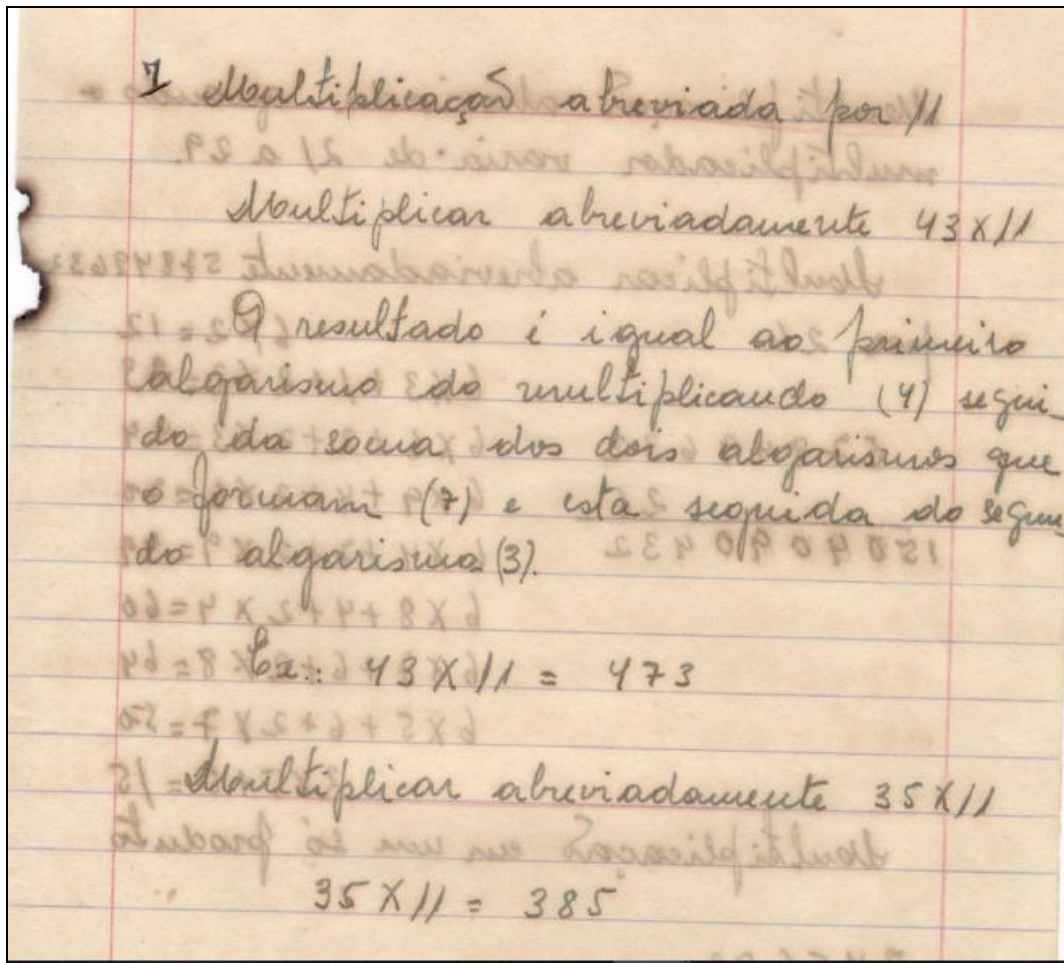 1 Multiplicação abreviada por 11
Multiplicar abreviadamente 43 x 11
O resultado é igual ao primeiro
algarismo do multiplicando (4) segui-
do da soma dos dois algarismos que
o formam (7) e esta seguida do segun-
do algarismo (3).
Ex.: 43 X 11 = 473
Multiplicar abreviadamente 35 X 11
35 X 11 = 385